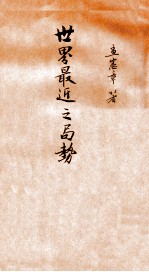 世界最近之局勢
查憲章著